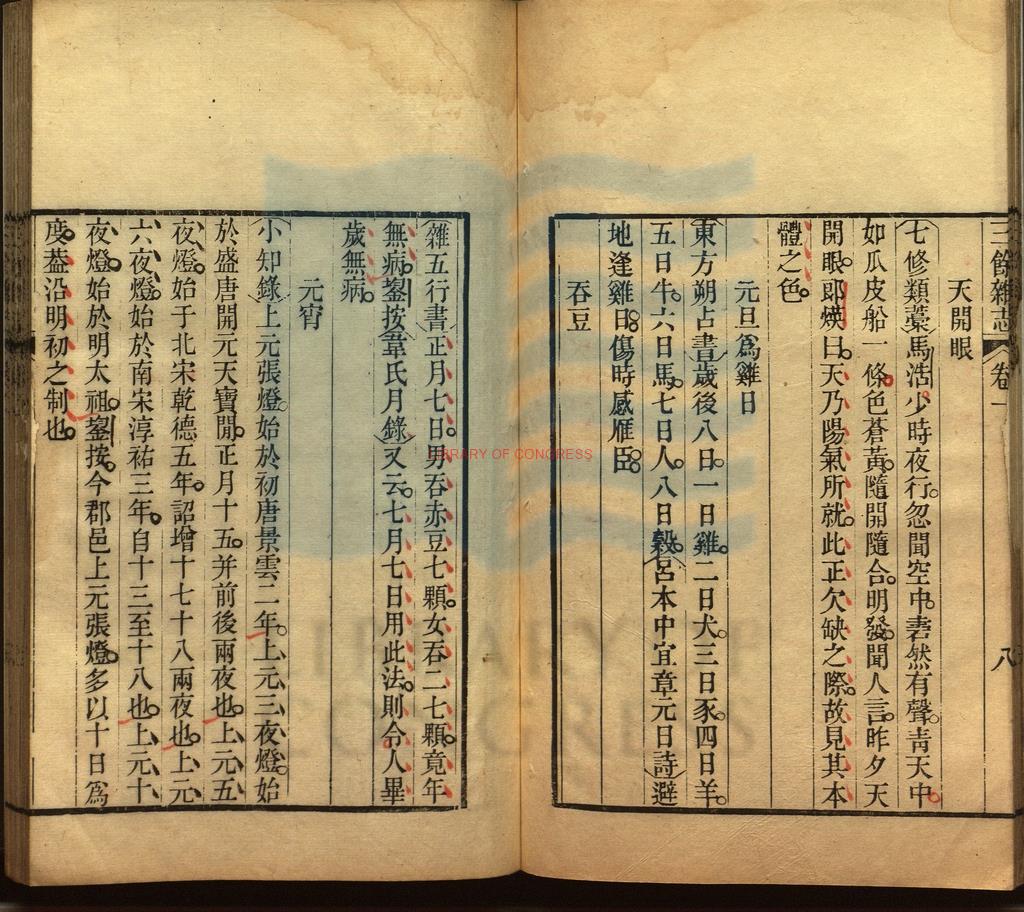 三餘雜志 卷一 八
天開眼
七修類藁馬浩少時夜行。忽聞空中。砉然有聲。青天中。
如瓜皮船一條。色蒼黃。隨開隨合。明發。聞人言。昨夕天
開眼。郎煐曰。天乃陽氣所就。此正欠缺之際。故見其本
體之色。
元旦爲雞日
東方朔占書歲後八日。一日雞。二日犬。三日豕。四日羊。
五日牛。六日馬。七日人。八日穀。呂本中宜章元日詩避
地逢雞日。傷時感雁臣。
吞豆
雜五行書正月七日。男吞赤豆七顆。女吞二七顆。竟年
無病。鋆按韋氏月錄又云。七月七日用此法。則令人畢
歲無病。
元宵
小知錄上元張燈。始於初唐景雲二年。上元三夜燈。始
於盛唐開元天寶間。正月十五。并前後兩夜也。上元五
夜燈。始于北宋乾德五年。詔增十七十八兩夜也。上元
六夜燈。始於南宋淳祐三年。自十三至十八也。上元十
夜燈。始於明太祖。鋆按。今郡邑上元張燈。多以十日爲
度。葢沿明初之制也。
LIBRARY OF CONGRESS